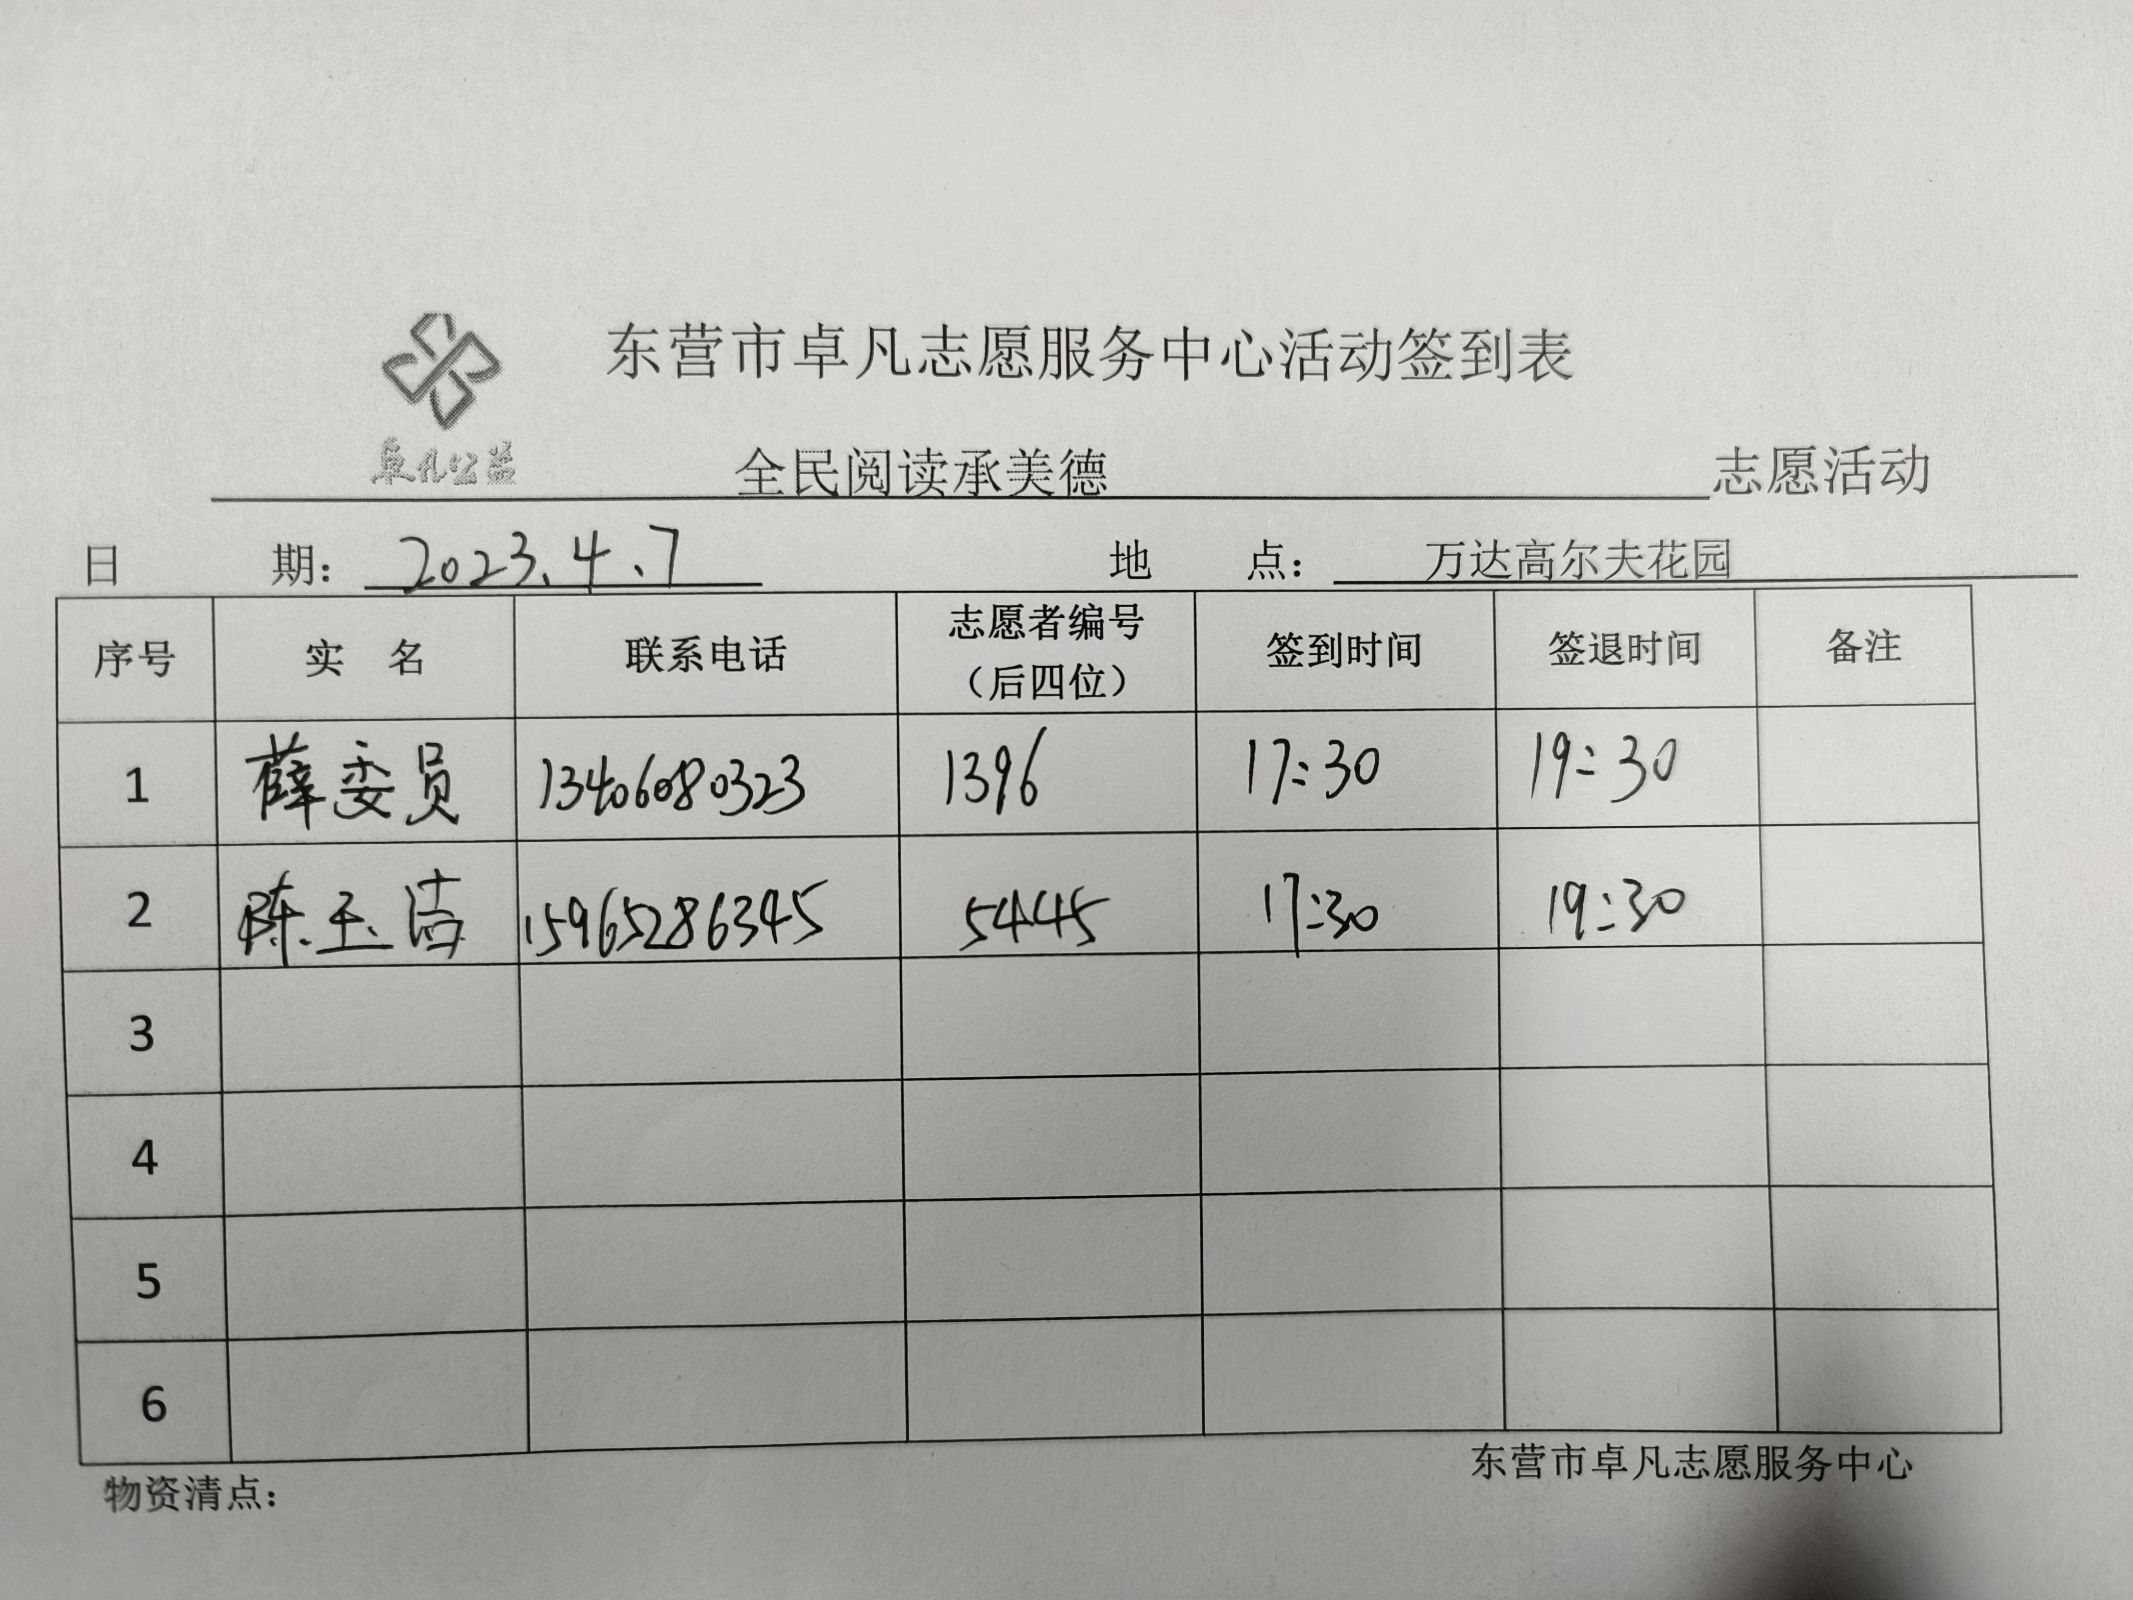 东营市卓凡志愿服务中心活动签到表
卓凡公益
全民阅读承美德 志愿活动
日 期： 2023.4.7 地 点： 万达高尔夫花园
序号 实 名 联系电话 志愿者编号（后四位） 签到时间 签退时间 备注
1 薛委员 13406080323 1396 17:30 19:30
2 陈玉洁 15965286345 5445 17:30 19:30
3
4
5
6
东营市卓凡志愿服务中心
物资清点：